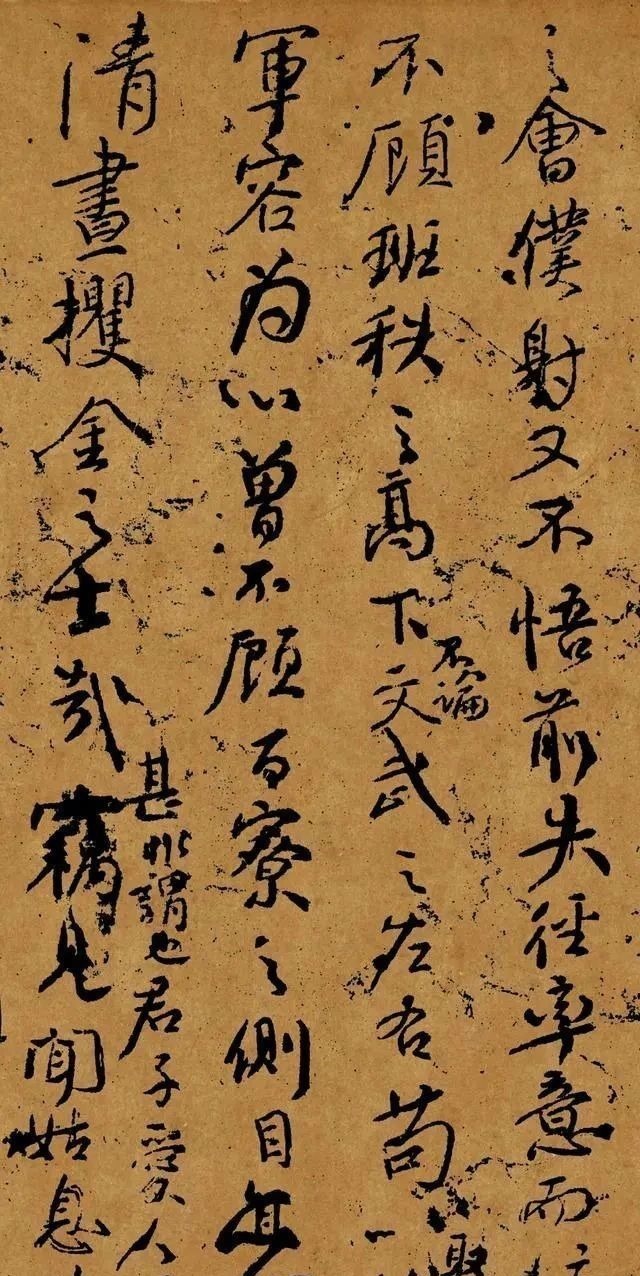 之會僕射又不悟前失徑率意而
不顧班秩之高下文武之左右苟以
不論
軍容為心曾不顧百寮之側目亦
清晝攫金之士哉竊見聞姑息
甚非謂也君子愛人